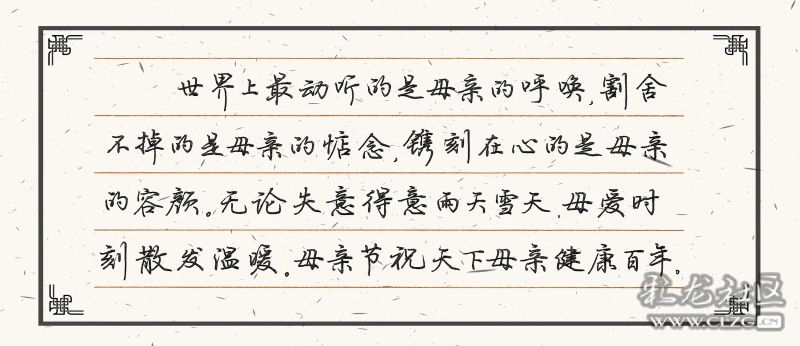 世界上最动听的是母亲的呼唤,割舍
不掉的是母亲的惦念,镌刻在心的是母亲
的容颜。无论失意得意雨天雪天,母爱时
刻散发温暖。母亲节祝天下母亲健康百年。
雅龙社区
WWW.CLZG.CN